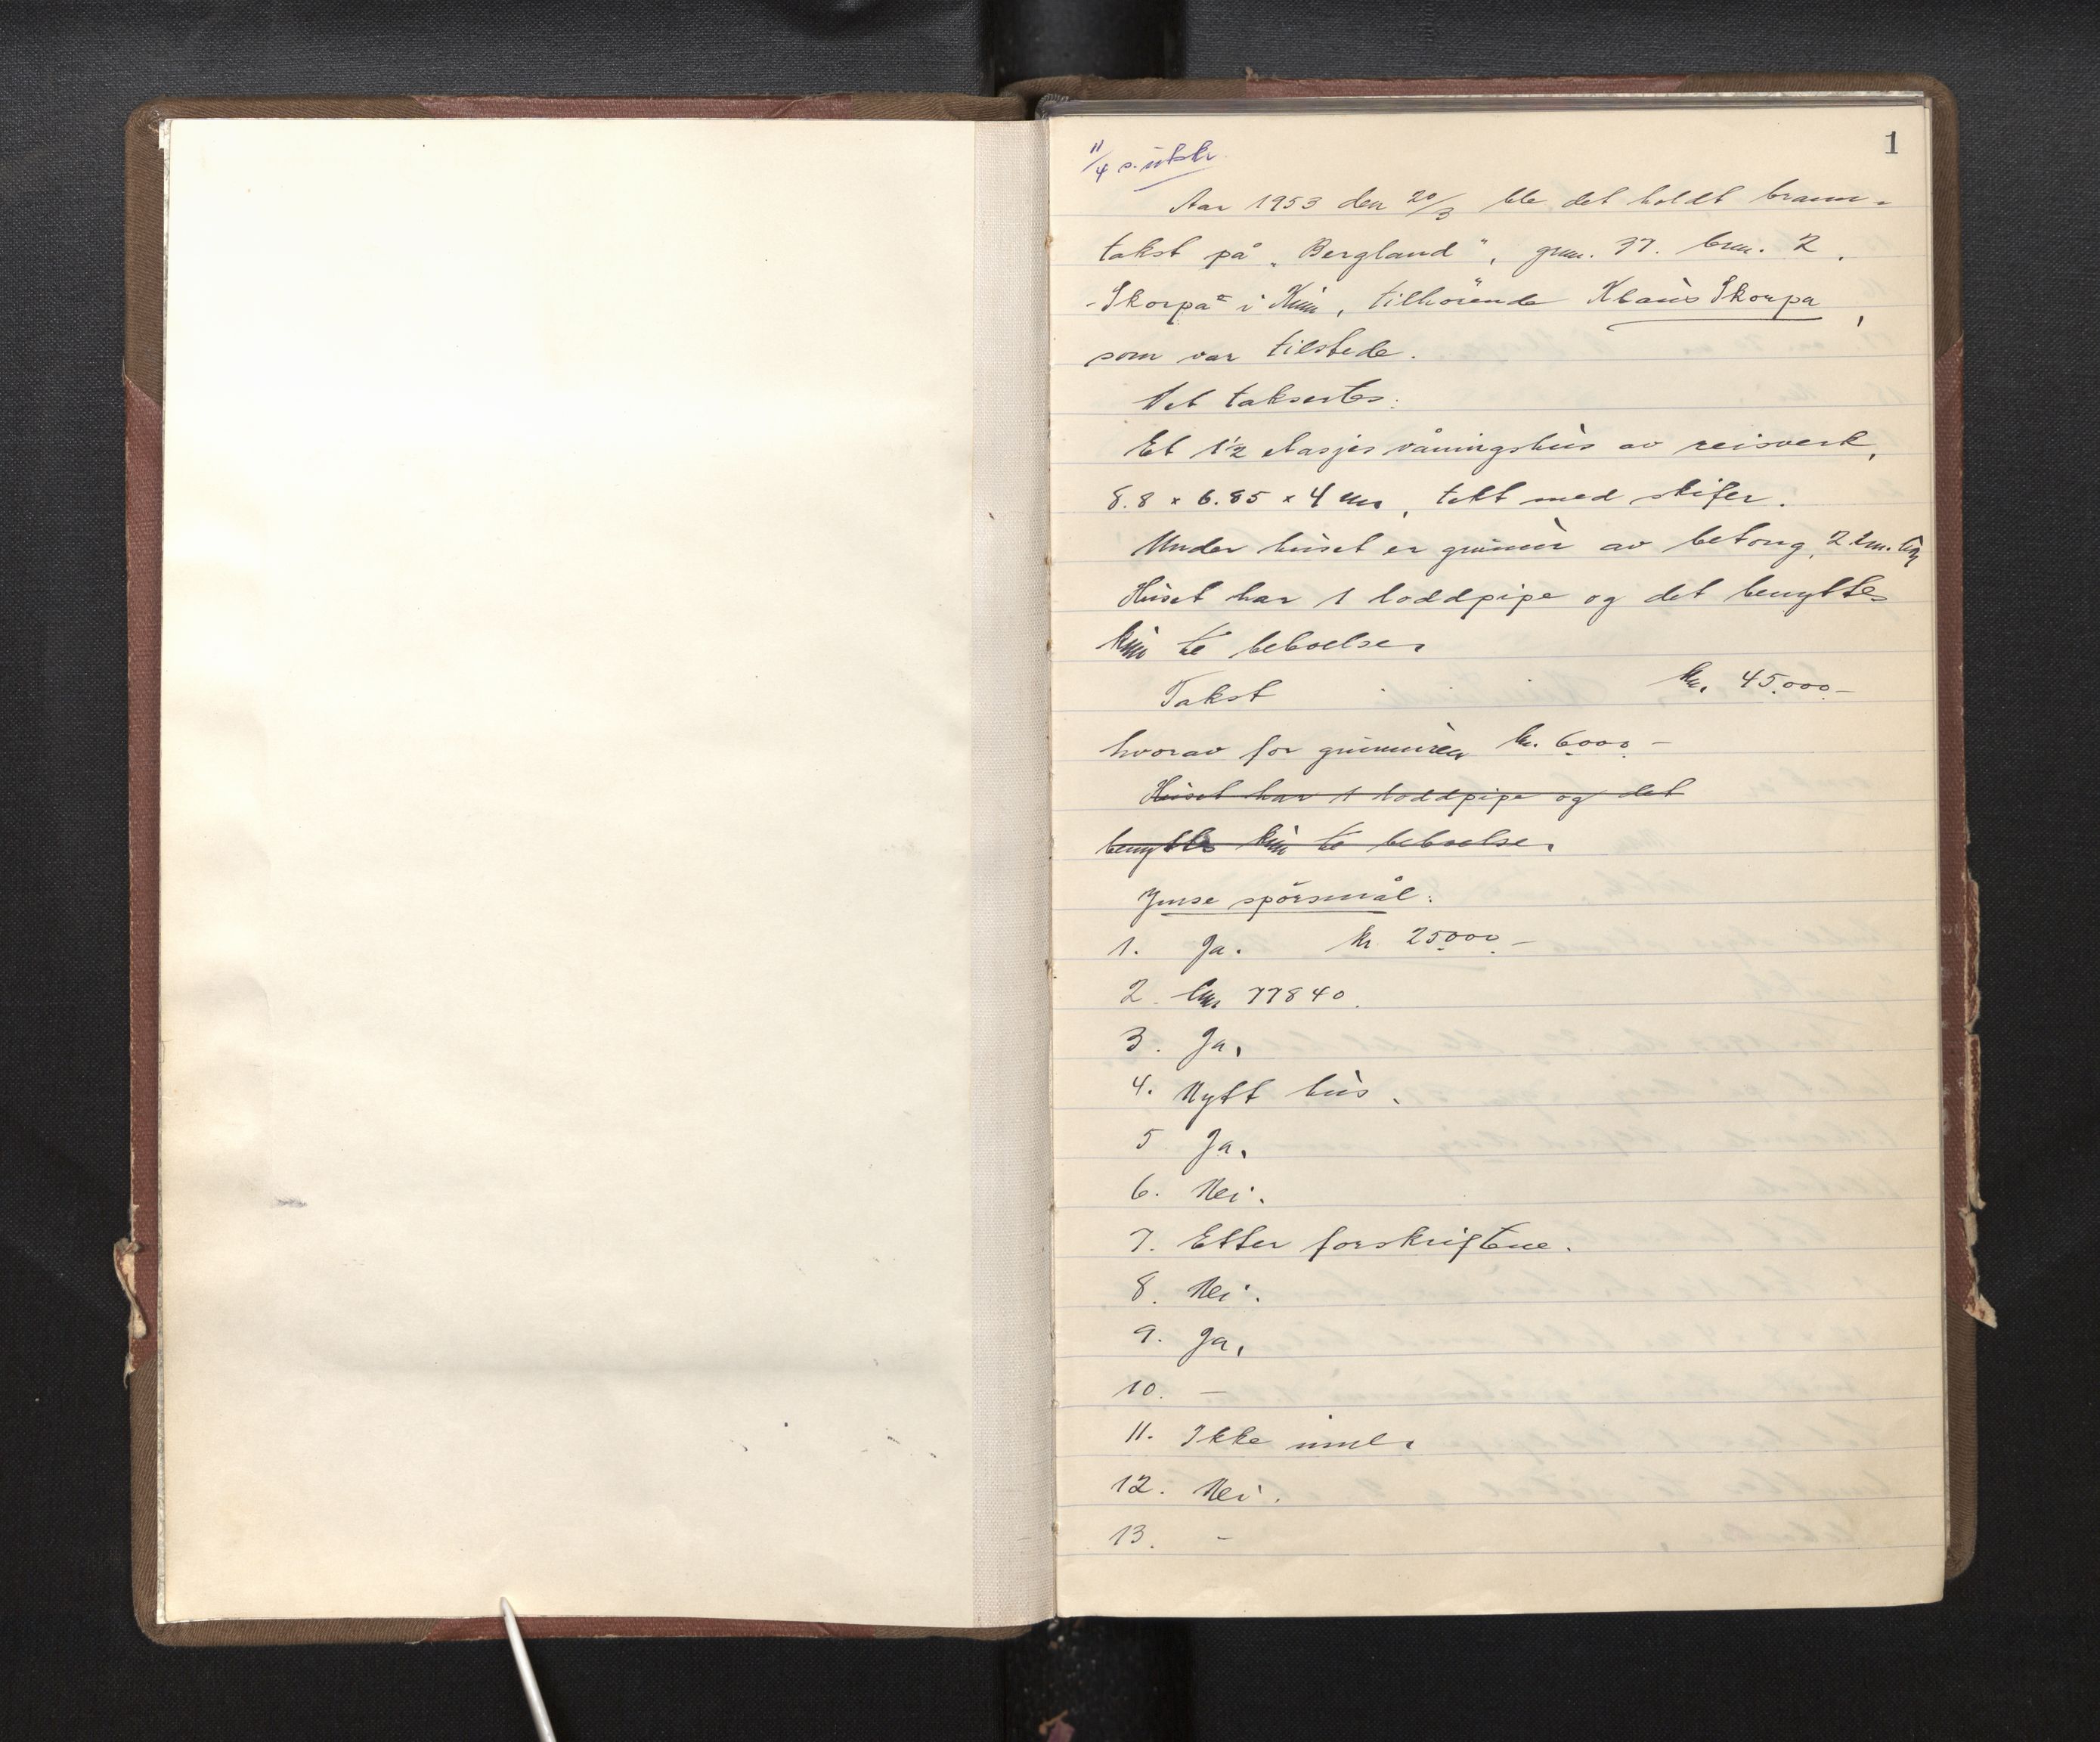 1
11/4 s. utskr.
Aar 1953 den 20/3 ble det holdt brann-
takst på „Bergland", gnr. 37. bnr. 2,
„Skorpa" i Kinn, tilhörende Klaus Skorpa,
som var tilstede.
Det taksertes:
Et 1½ etasjes våningshus av reisverk,
8.8 x 6.85 x 4 m, tekt med skifer.
Under huset er grunnmur av betong, 2.2 m. høg
Huset har 1 loddpipe og det benyttes
kun til beboelse.
Takst kr. 45.000.-
hvorav for grunnmuren kr. 6000.-
Huset har 1 loddpipe og det
benyttes kun til beboelse.
Jnse spörsmål:
1. Ja. kr 25000.-
2. 77840.
3. Ja.
4. Nytt hus.
5 Ja.
6. Nei.
7. Etter forskriftene.
8. Nei.
9. Ja.
10. -
11. Ikke innl.
12. Nei.
13. -